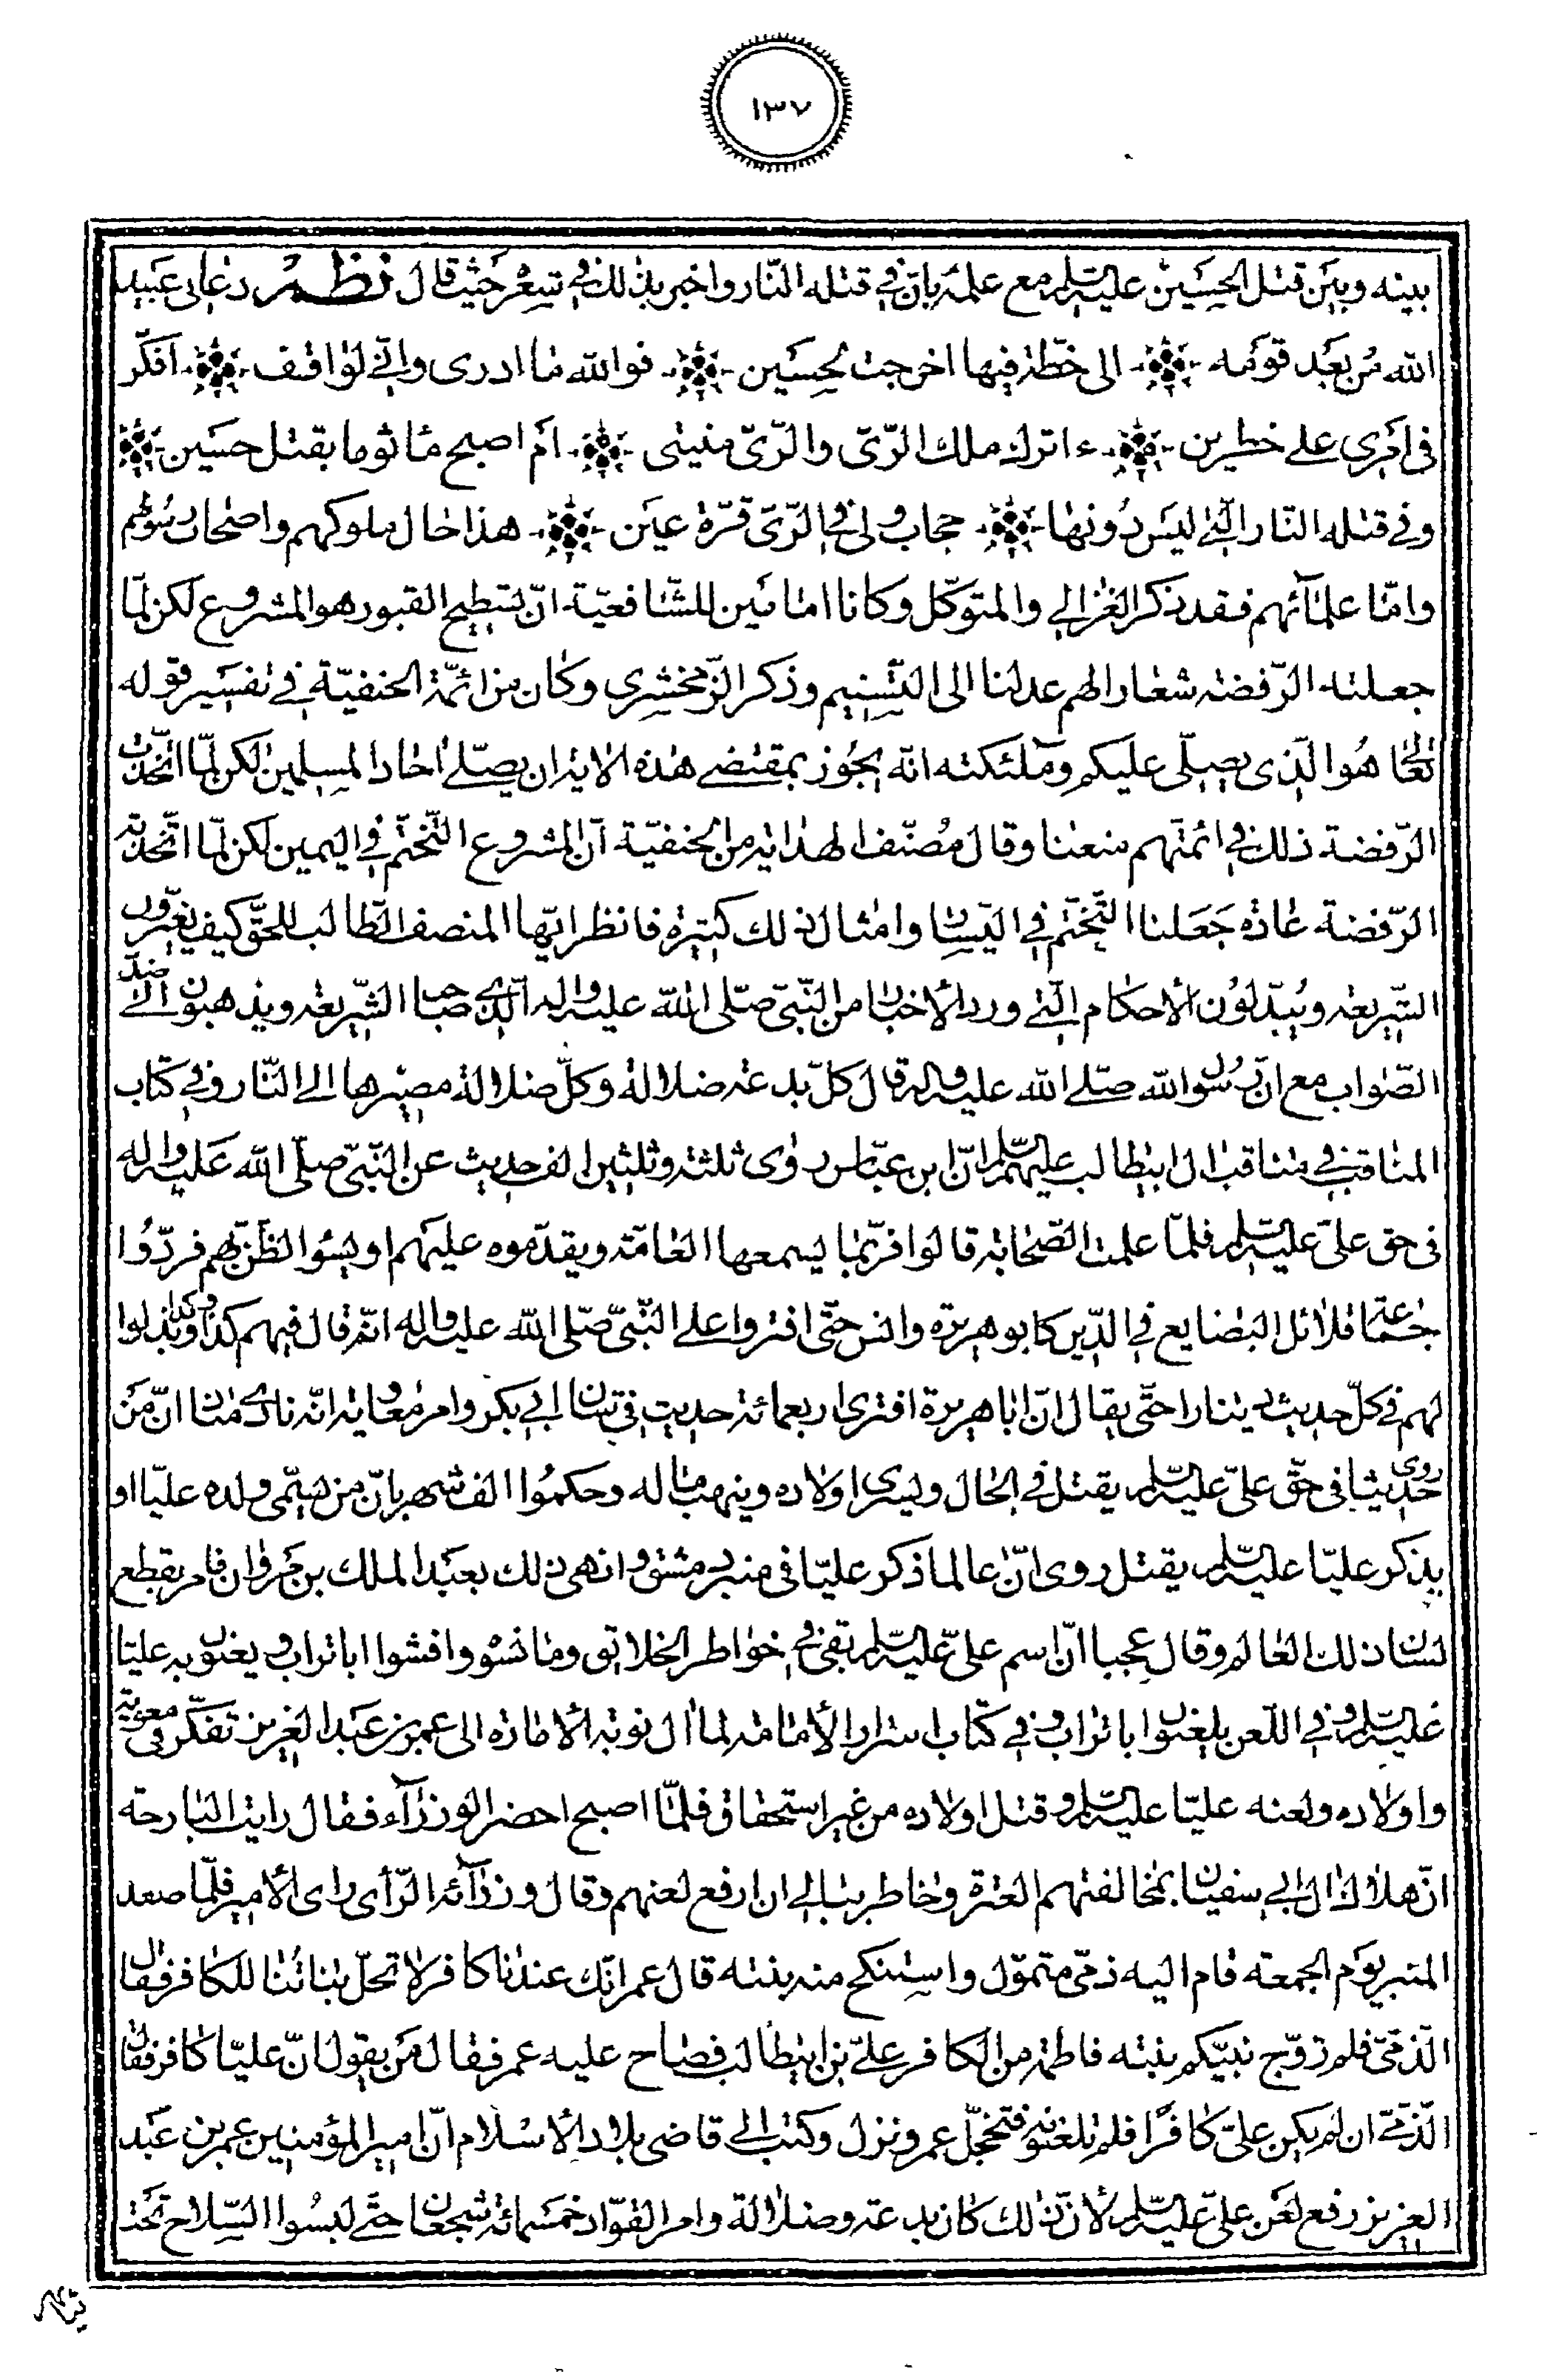 ١٣٧
بينه وبين قتل الحسين عليه السلم مع علمه بان في قتله النار واخبر بذلك في شعر حيث قال نظم دعانى عبيد
الله من بعد قومه الى خطة فيها اخرجت لحسين فوالله ما ادرى واني لواقف افكر
في امرى على خطيرين ءاترك ملك الرّى والرّى منيتى ام اصبح ماثوما بقتل حسين
وفي قتله النار التي ليس دونها حجاب ولى في الرّى قرّة عين هذا حال ملوكهم واصحاب رسولهم
وامّا علمآئهم فقد ذكر الغزالي والمتوكّل وكانا امامين للشافعيّة انّ تسطيح القبور هو المشروع لكن لمّا
جعلته الرّفضة شعارا لهم عدلنا الى التسنيم وذكر الزّمخشرى وكان من ائمّة الحنفيّة في تفسير قوله
تعالى هو الّذى يصلّى عليكم وملئكته انّه يجوز بمقتضى هذه الاية ان يصلّى احاد المسلمين لكن لمّا اتّخذت
الرّفضة ذلك في ائمّتهم منعنا وقال مصنّف الهداية من الحنفيّة انّ المشروع التّختّم في اليمين لكن لمّا اتّخذته
الرّفضة عادة جعلنا التّختّم في اليسار وامثال ذلك كثيرة فانظر ايّها المنصف الطّالب للحقّ كيف يغيّرون
الشّريعة ويبدّلون الاحكام الّتي ورد الاخبار من النّبىّ صلّى الله عليه واله الّذى صاحب الشّريعة ويذهبون الى ضدّ
الصّواب مع انّ رسول الله صلّى الله عليه واله قال كلّ بدعة ضلالة وكلّ ضلالة مصيرها الى النّار وفي كتاب
المناقب في مناقب ال ابيطالب عليهم السّلم انّ ابن عبّاس روى ثلثة وثلثين الف حديث عن النّبىّ صلّى الله عليه واله
في حق علىّ عليه السّلم فلمّا علمت الصّحابة قالوا فربّما يسمعها العامّة ويقدّموه عليهم او يسئوا الظّنّ بهم فردّوا
جماعة قلائل البضايع في الدّين كابو هريرة وانس حتّى افتروا على النّبىّ صلّى الله عليه واله انّه قال فيهم كذا وكذا وبذلوا
لهم في كلّ حديث دينارا حتّى يقال انّ اباهريرة افترى اربعمائة حديث في شان ابى بكر وامر معاوية انّه نادى مناد انّ من
روى حديثا في حقّ علىّ عليه السّلم يقتل في الحال وليسرى اولاده وينهب ماله وحكموا الف شهر بانّ من يسمّى ولده عليّا او
يذكر عليّا عليه السّلم يقتل روى انّ عالما ذكر عليّا في منبر دمشق وانهى ذلك بعبد الملك بن مروان فامر بقطع
لسان ذلك العالم وقال عجبا انّ اسم علىّ عليه السّلم بقى في خواطر الخلايق وما نسوه وافشوا اباتراب يعنون به عليّا
عليه السّلم وفي اللّعن يلعنوا باتراب وفي كتاب اسرار الامامة لما ال نوبة الامارة الى عمر بن عبد العزيز تفكّر في معوية
واولاده ولعنه عليّا عليه السّلم وقتل اولاده من غير استحقاق فلمّا اصبح احضر الوزرآء فقال رايت البارحة
انّ هلاك ال ابى سفيان بمخالفتهم العترة وخاطر ببالى ان ارفع لعنهم وقال وزرآئه الرّأى راى الامير فلمّا صعد
المنبر يوم الجمعة قام اليه ذمّى متموّل واستنكح منه بنته قال عمر انّك عندنا كافر لا تحلّ بناتنا للكافر فقال
الذّمّى فلم زوّج نبيّكم بنته فاطمة من الكافر علىّ بن ابيطالب فصاح عليه عمر فقال من يقول انّ عليّا كافر فقال
الذّمّى ان لم يكن علىّ كافرا فلم تلعنونه فتخجّل عمر ونزل وكتب الى قاضى بلاد الاسلام انّ امير المؤمنين عمر بن عبد
العزيز رفع لعن علىّ عليه السّلم لانّ ذلك كان بدعة وضلالة وامر القوّاد خمسمائة شجعان حتّى لبسوا السّلاح تحت